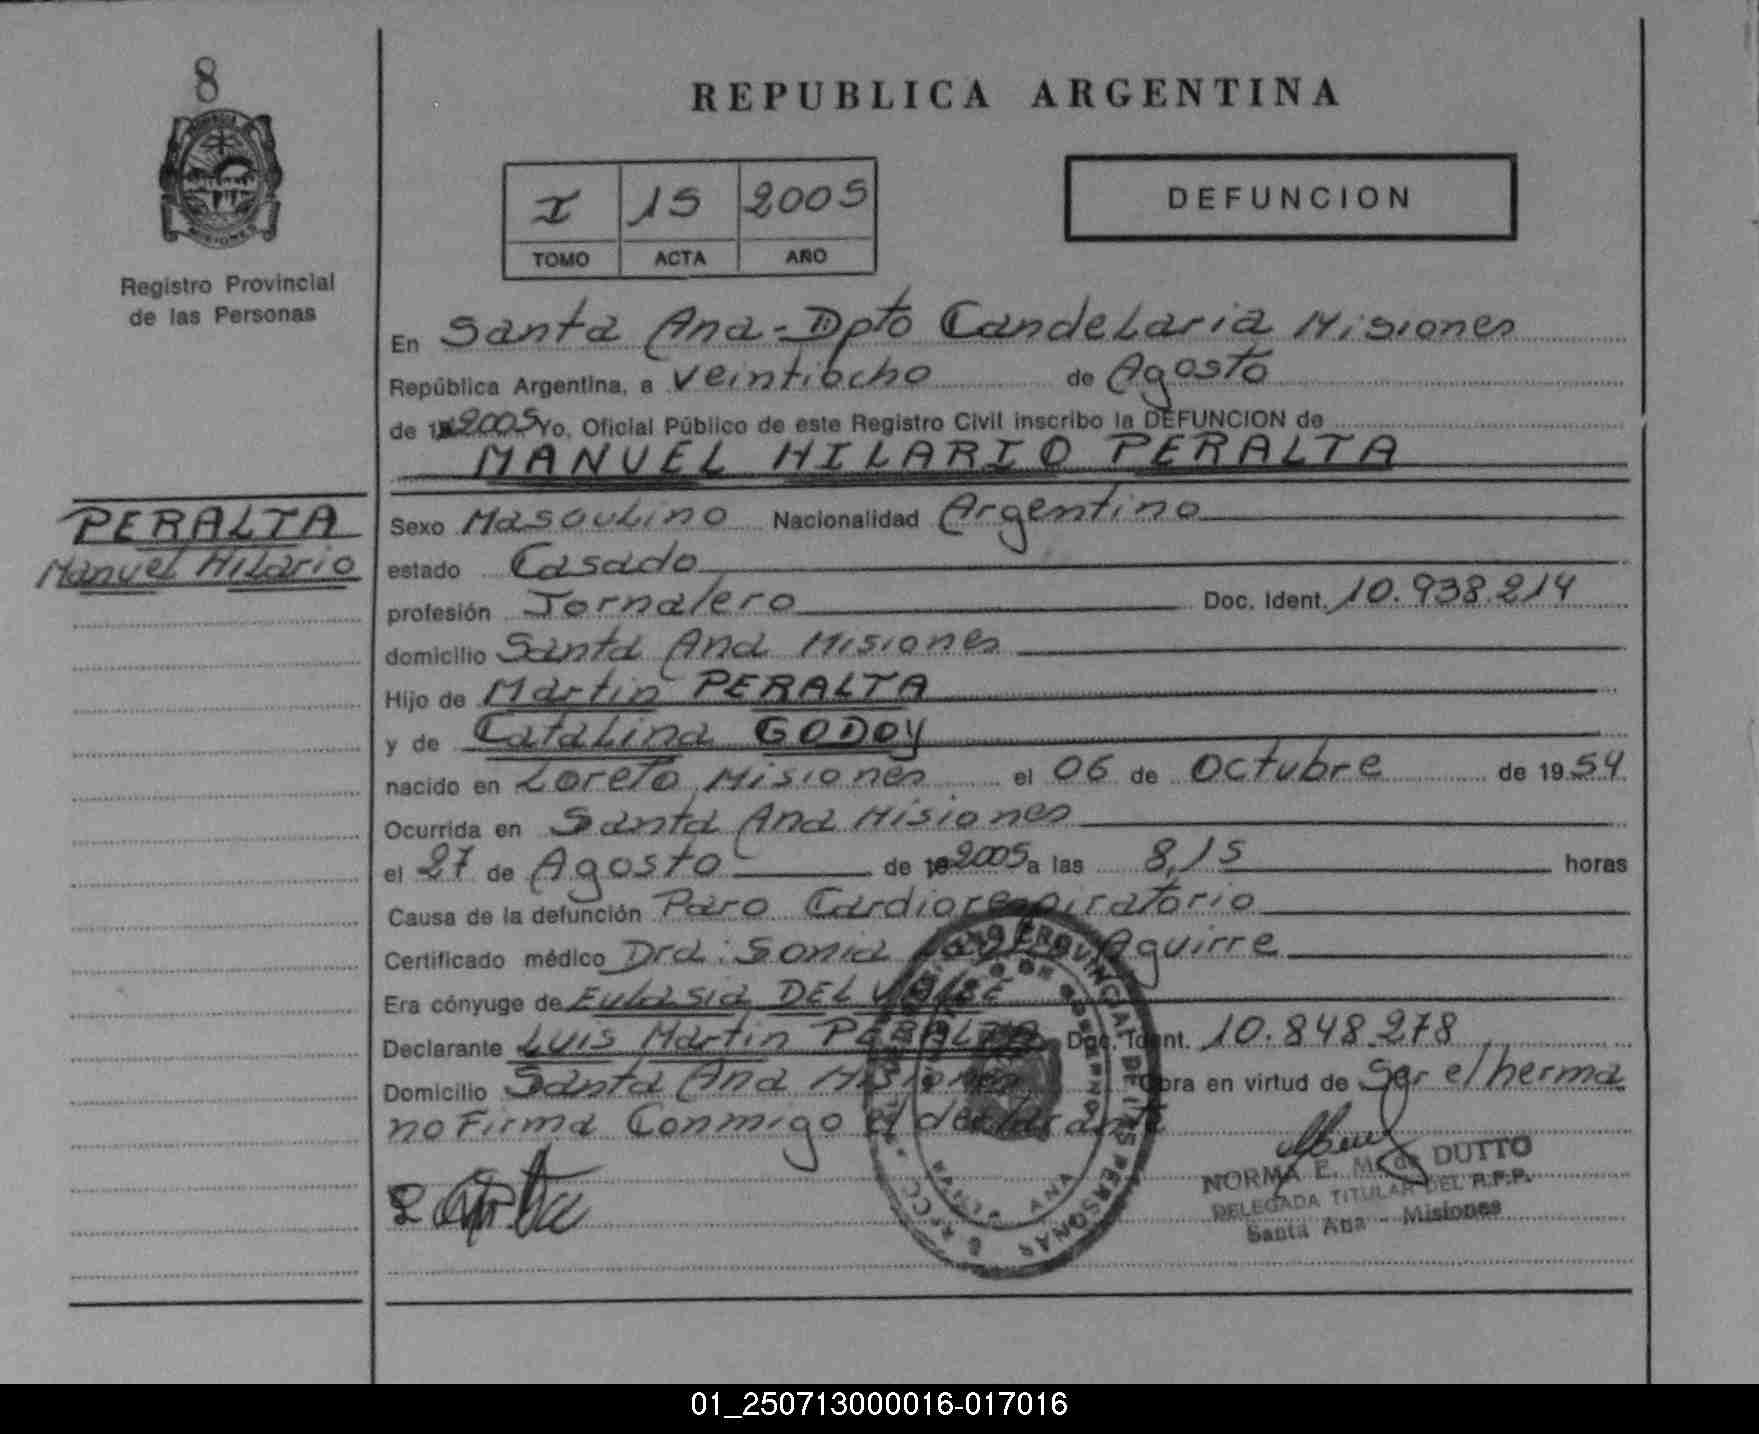 8
REPUBLICA ARGENTINA
I 15 2005
TOMO ACTA AÑO
DEFUNCION
MISIONES
Registro Provincial
de las Personas
En Santa Ana - Dpto Candelaria Misiones
República Argentina, a veintiocho de Agosto
de 2005 Yo, Oficial Público de este Registro Civil inscribo la DEFUNCION de
MANUEL HILARIO PERALTA
PERALTA
Manuel Hilario
Sexo Masculino Nacionalidad Argentino
estado Casado
profesión Jornalero Doc. Ident. 10.938.214
domicilio Santa Ana Misiones
Hijo de Martin PERALTA
y de Catalina GODOY
nacido en Loreto Misiones el 06 de Octubre de 1954
Ocurrida en Santa Ana Misiones
el 27 de Agosto de 2005 a las 8,15 horas
Causa de la defunción Paro Cardiorespiratorio
Certificado médico Dra: Sonia Aguirre
Era cónyuge de Eulasia DEL VALLE
Declarante Luis Martin PERALTA Doc. Ident. 10.848.278
Domicilio Santa Ana Misiones Obra en virtud de Ser el herma
no Firma Conmigo el declarante
REGISTRO PROVINCIAL DE LAS PERSONAS
SANTA ANA
NORMA E. M. de DUTTO
DELEGADA TITULAR DEL R.P.P.
Santa Ana - Misiones
01_250713000016-017016